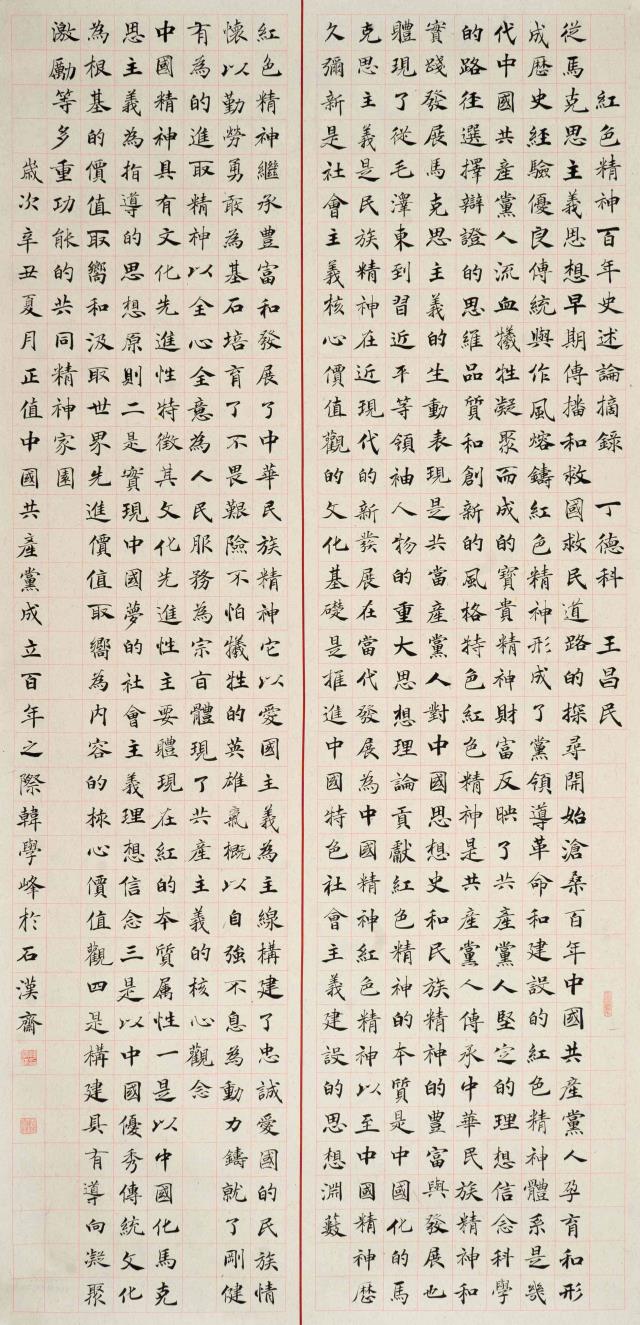 紅色精神百年史述論摘録　丁德科　王昌民
從馬克思主義思想早期傳播和救國救民道路的探尋開始滄桑百年中國共產黨人孕育和形
成歷史經驗優良傳統與作風熔鑄紅色精神形成了黨領導革命和建設的紅色精神體系是幾
代中國共產黨人流血犧牲凝聚而成的寶貴精神財富反映了共產黨人堅定的理想信念科學
的路徑選擇辯證的思維品質和創新的風格特色紅色精神是共產黨人傳承中華民族精神和
實踐發展馬克思主義的生動表現是共當產黨人對中國思想史和民族精神的豐富與發展也
體現了從毛澤東到習近平等領袖人物的重大思想理論貢獻紅色精神的本質是中國化的馬
克思主義是民族精神在近現代的新發展在當代發展為中國精神紅色精神以至中國精神歷
久彌新是社會主義核心價值觀的文化基礎是推進中國特色社會主義建設的思想淵藪
紅色精神繼承豐富和發展了中華民族精神它以愛國主義為主線構建了忠誠愛國的民族情
懷以勤勞勇敢為基石培育了不畏艱險不怕犧牲的英雄氣概以自強不息為動力鑄就了剛健
有為的進取精神以全心全意為人民服務為宗旨體現了共產主義的核心觀念
中國精神具有文化先進性特徵其文化先進性主要體現在紅的本質属性一是以中國化馬克
思主義為指導的思想原則二是實現中國夢的社會主義理想信念三是以中國優秀傳統文化
為根基的價值取嚮和汲取世界先進價值取嚮為内容的核心價值觀四是構建具有導向凝聚
激勵等多重功能的共同精神家園
歲次辛丑夏月正值中國共產黨成立百年之際韓學峰於石漢齋